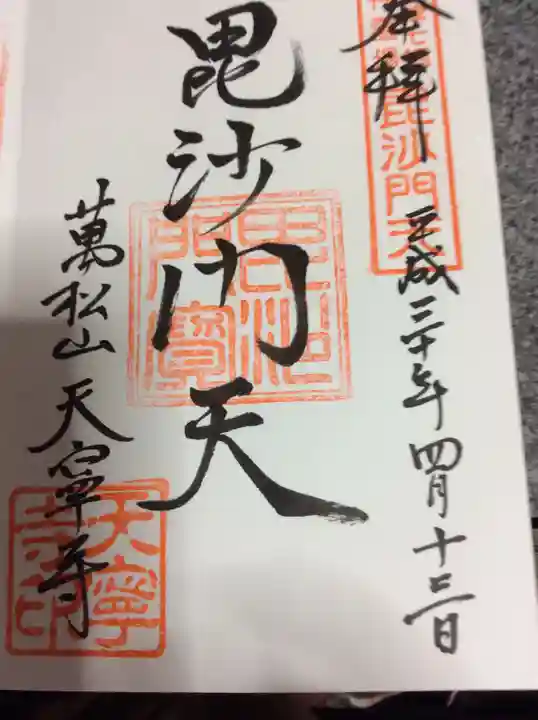 奉拝
平成三十年四月十三日
毘沙門天
萬松山 天寧寺
毘沙門天
天寧寺印